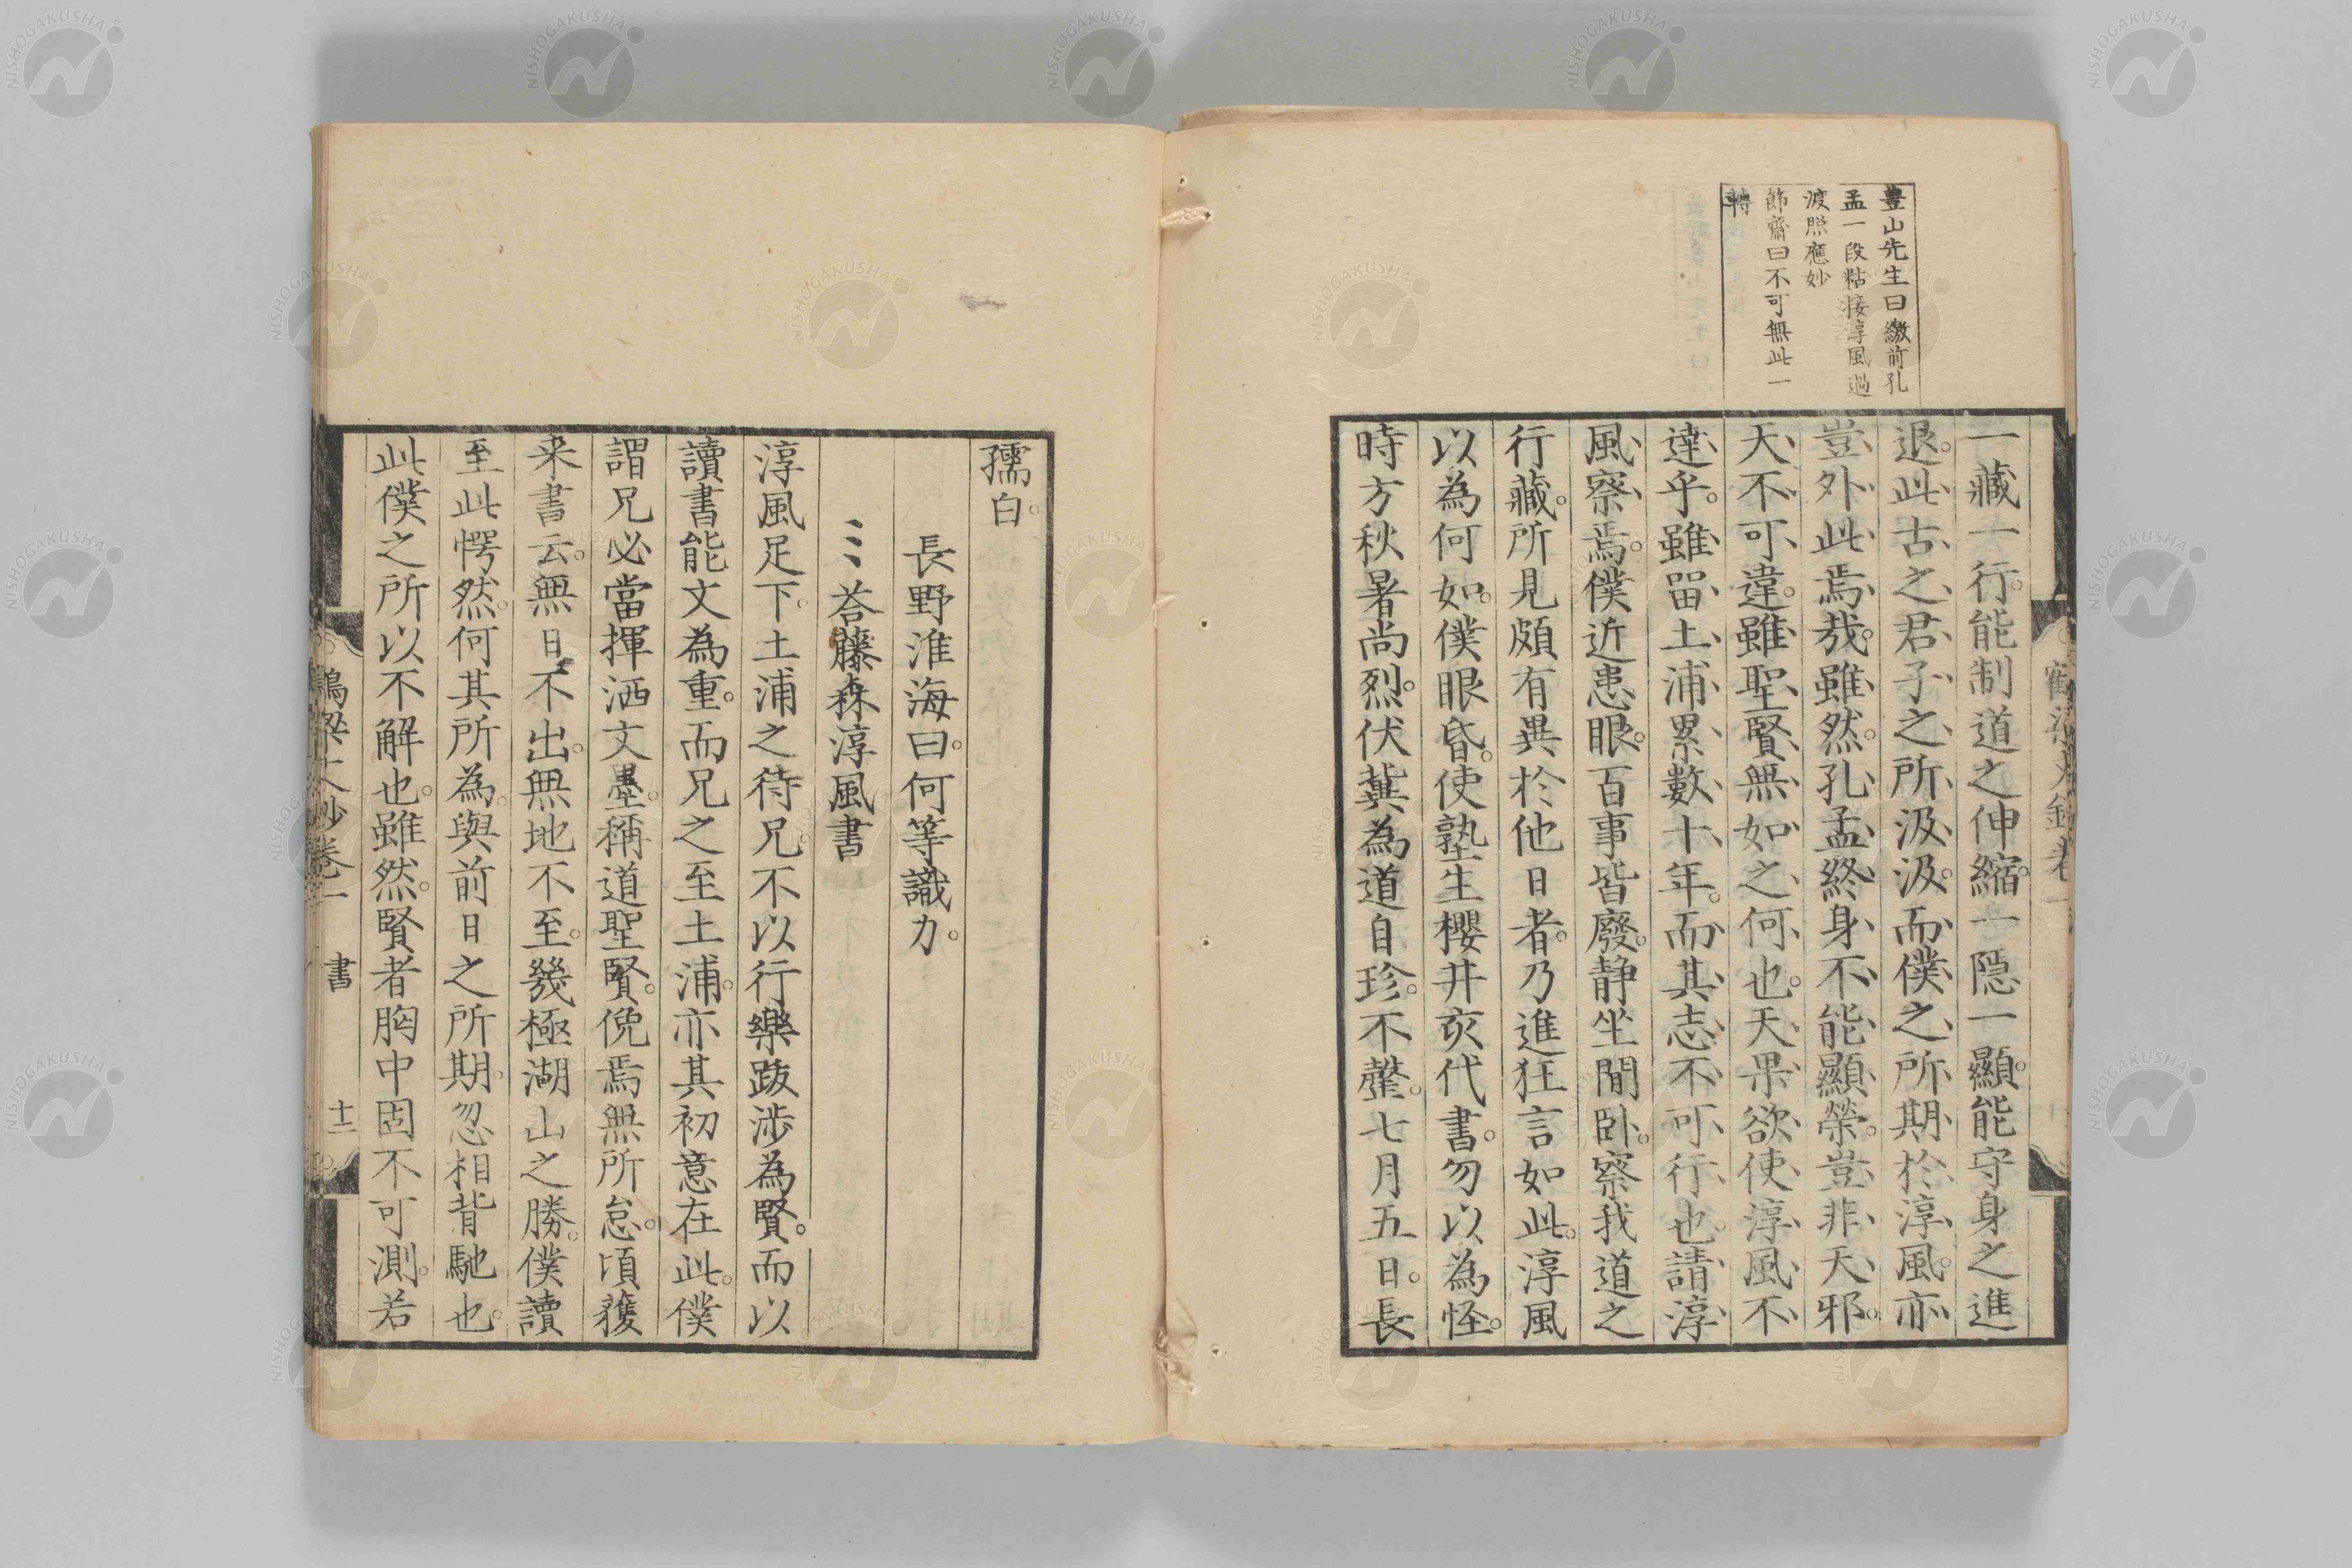 豊山先生曰繳前孔
孟一段粘接淳風過
渡照應妙
節齋曰不可無此一
轉
一藏一行。能制道之伸縮。一隠一顯。能守身之進
退。此古之君子之所汲汲。而僕之所期於淳風。亦
豈外此焉哉。雖然。孔孟終身不能顯榮。豈非天邪。
天不可違。雖聖賢無如之何也。天果欲使淳風不
達乎。雖畱土浦累數十年。而其志不可行也。請淳
風察焉。僕近患眼。百事皆廢。静坐閒臥。察我道之
行藏。所見頗有異於他日者。乃進狂言如此。淳風
以為何如。僕眼昏。使塾生櫻井亥代書。勿以為怪。
時方秋暑尚烈。伏冀為道自珍。不罄。七月五日。長
孺白。
長野淮海曰。何等識力。
答藤森淳風書
淳風足下。土浦之待兄。不以行樂跋渉為賢。而以
讀書能文為重。而兄之至土浦。亦其初意在此。僕
謂兄必當揮洒文墨。稱道聖賢。俛焉無所怠。頃獲
来書云。無日不出。無地不至。幾極湖山之勝。僕讀
至此愕然。何其所為。與前日之所期。忽相背馳也。
此僕之所以不解也。雖然。賢者胸中固不可測。若
鶴梁文鈔卷一 書 十二
NISHOGAKUSHA